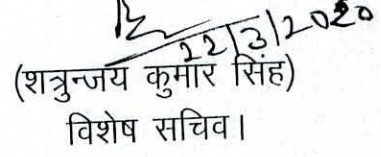 22/3/2020
(शत्रुन्जय कुमार सिंह)
विशेष सचिव।